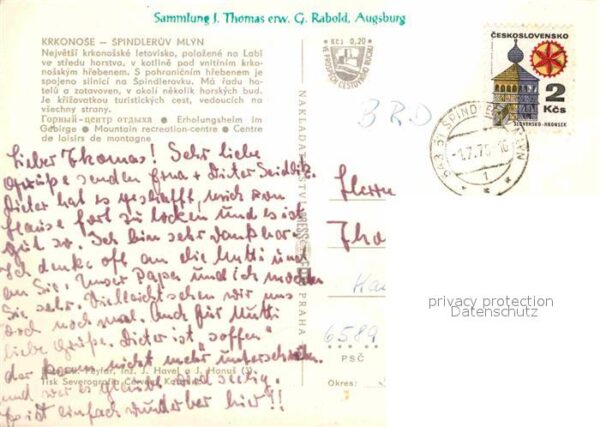 Sammlung J. Thomas erw. G. Rabold, Augsburg
KRKONOŠE – ŠPINDLERŮV MLÝN
Největší krkonošské letovisko, položené na Labi
ve středu horstva, v kotlině pod vnitřním krko-
nošským hřebenem. S pohraničním hřebenem je
spojeno silnicí na Špindlerovku. Má řadu ho-
telů a zotavoven, v okolí několik horských bud.
Je křižovatkou turistických cest, vedoucích na
všechny strany.
Горный центр отдыха ● Erholungsheim im
Gebirge ● Mountain recreation-centre ● Centre
de loisirs de montagne
Lieber Thomas! Sehr liebe
Grüße senden Erna + Dieter
Dieter hat es geschafft, mich von
Hause fort zu locken und es ist
gut so. Ich bin sehr dankbar.
Ich denke oft an die Mutti und
an Sie. Unser Papa und ich mochten
Sie sehr. Vielleicht sehen wir uns
doch noch mal. Auch für Mutti
liebe Grüße. Dieter ist "soffen"
der kann nicht mehr unterschreiben.
und wer es glaubt wird selig.
Es ist einfach wunderbar hier!!
Foto: Fr. Peyfar, Inz. J. Havel a J. Honuš
Tisk Severografia
NAKLADATELSTVÍ PRESSFOTO PRAHA
Kčs 0,20
VE PROSPĚCH CESTOVNÍHO RUCHU
BRD
ČESKOSLOVENSKO
2
Kčs
SLOVENSKO-HRONSEK
543 51 ŠPINDLERŮV MLÝN
-1.7.75-16
1
Herrn
Tho
6589
PSČ
Okres:
privacy protection
Datenschutz